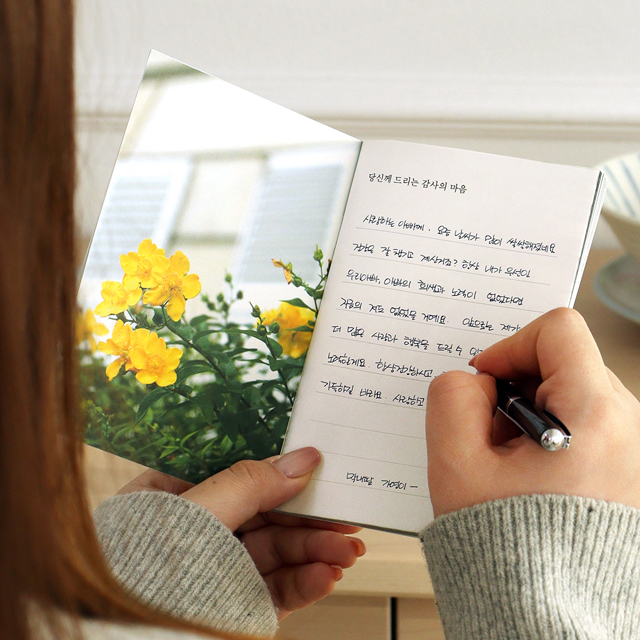 당신께 드리는 감사의 마음
사랑하는 아빠께. 요즘 날씨가 많이 쌀쌀해졌네요
건강은 잘 챙기고 계시죠? 항상 내가 우선인
우리아빠, 아빠의 희생과 노력이 없었다면
지금의 저도 없었을 거예요. 앞으로는 제가
더 많은 사랑과 행복을 드릴 수
노력할게요 항상 건강하시고
기득하길 바라요 사랑하고
막내딸 가영이 -